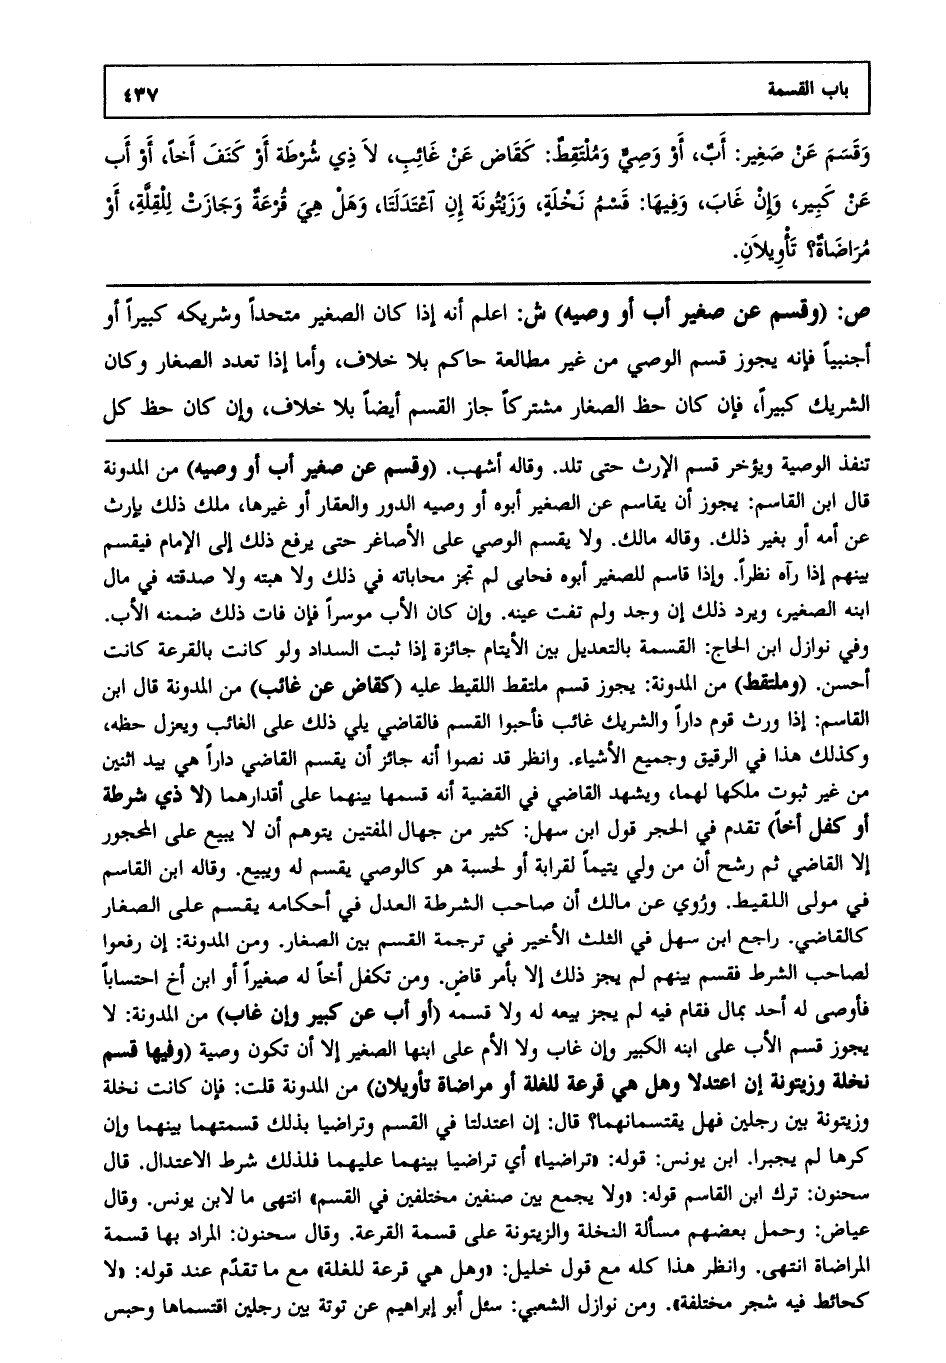 باب القسمة ٤٣٧
وَقَسَمَ عَنْ صَغِير: أَبٌ، أَوْ وَصِيٌّ وَمُلْتَقِطٌ: كَقَاض عَنْ غَائِبِ، لاَ ذِي شُرْطَة أَوْ كَنَفَ أَخاً، أَوْ أَب
عَنْ كَبِير، وَإِنْ غَابَ، وَفِيهَا: قَسْمُ نَخْلَةٍ، وَزَيْتُونَة إِنِ اَعْتَدَلَتَا، وَهَلْ هِيَ قُرْعَةٌ وَجَازَتْ لِلْقِلَّةِ، أَوْ
مُرَاضَاةٌ؟ تَأْوِيلاَنِ.
ص: (وقسم عن صغير أب أو وصيه) ش: اعلم أنه إذا كان الصغير متحداً وشريكه كبيراً أو
أجنبياً فإنه يجوز قسم الوصي من غير مطالعة حاكم بلا خلاف، وأما إذا تعدد الصغار وكان
الشريك كبيراً، فإن كان حظ الصغار مشتركاً جاز القسم أيضاً بلا خلاف، وإن كان حظ كل
تنفذ الوصية ويؤخر قسم الإرث حتى تلد. وقاله أشهب. (وقسم عن صغير أب أو وصيه) من المدونة
قال ابن القاسم: يجوز أن يقاسم عن الصغير أبوه أو وصيه الدور والعقار أو غيرها، ملك ذلك بإرث
عن أمه أو بغير ذلك. وقاله مالك. ولا يقسم الوصي على الأصاغر حتى يرفع ذلك إلى الإمام فيقسم
بينهم إذا رآه نظراً. وإذا قاسم للصغير أبوه فحابى لم تجز محاباته في ذلك ولا هبته ولا صدقته في مال
ابنه الصغير، ويرد ذلك إن وجد ولم تفت عينه. وإن كان الأب موسراً فإن فات ذلك ضمنه الأب.
وفي نوازل ابن الحاج: القسمة بالتعديل بين الأيتام جائزة إذا ثبت السداد ولو كانت بالقرعة كانت
أحسن. (وملتقط) من المدونة: يجوز قسم ملتقط اللقيط عليه (كقاض عن غائب) من المدونة قال ابن
القاسم: إذا ورث قوم داراً والشريك غائب فأحبوا القسم فالقاضي يلي ذلك على الغائب ويعزل حظه،
وكذلك هذا في الرقيق وجميع الأشياء. وانظر قد نصوا أنه جائز أن يقسم القاضي داراً هي بيد اثنين
من غير ثبوت ملكها لهما، ويشهد القاضي في القضية أنه قسمها بينهما على أقدارهما (لا ذي شرطة
أو كفل أخاً) تقدم في الحجر قول ابن سهل: كثير من جهال المفتين يتوهم أن لا يبيع على المحجور
إلا القاضي ثم رشح أن من ولي يتيماً لقرابة أو لحسبة هو كالوصي يقسم له ويبيع. وقاله ابن القاسم
في مولى اللقيط. ورُوي عن مالك أن صاحب الشرطة العدل في أحكامه يقسم على الصغار
كالقاضي. راجع ابن سهل في الثلث الأخير في ترجمة القسم بين الصغار. ومن المدونة: إن رفعوا
لصاحب الشرط فقسم بينهم لم يجز ذلك إلا بأمر قاضٍ. ومن تكفل أخاً له صغيراً أو ابن أخ احتساباً
فأوصى له أحد بمال فقام فيه لم يجز بيعه له ولا قسمه (أو أب عن كبير وإن غاب) من المدونة: لا
يجوز قسم الأب على ابنه الكبير وإن غاب ولا الأم على ابنها الصغير إلا أن تكون وصية (وفيها قسم
نخلة وزيتونة إن اعتدلا وهل هي قرعة للغلة أو مراضاة تأويلان) من المدونة قلت: فإن كانت نخلة
وزيتونة بين رجلين فهل يقتسمانهما؟ قال: إن اعتدلتا في القسم وتراضيا بذلك قسمتهما بينهما وإن
كرها لم يجبرا. ابن يونس: قوله: «تراضيا» أي تراضيا بينهما عليهما فلذلك شرط الاعتدال. قال
سحنون: ترك ابن القاسم قوله: «ولا يجمع بين صنفين مختلفين في القسم» انتهى ما لابن يونس. وقال
عياض: وحمل بعضهم مسألة النخلة والزيتونة على قسمة القرعة. وقال سحنون: المراد بها قسمة
المراضاة انتهى. وانظر هذا كله مع قول خليل: «وهل هي قرعة للغلة» مع ما تقدّم عند قوله: «لا
كحائط فيه شجر مختلفة». ومن نوازل الشعبي: سئل أبو إبراهيم عن توتة بين رجلين اقتسماها وحبس